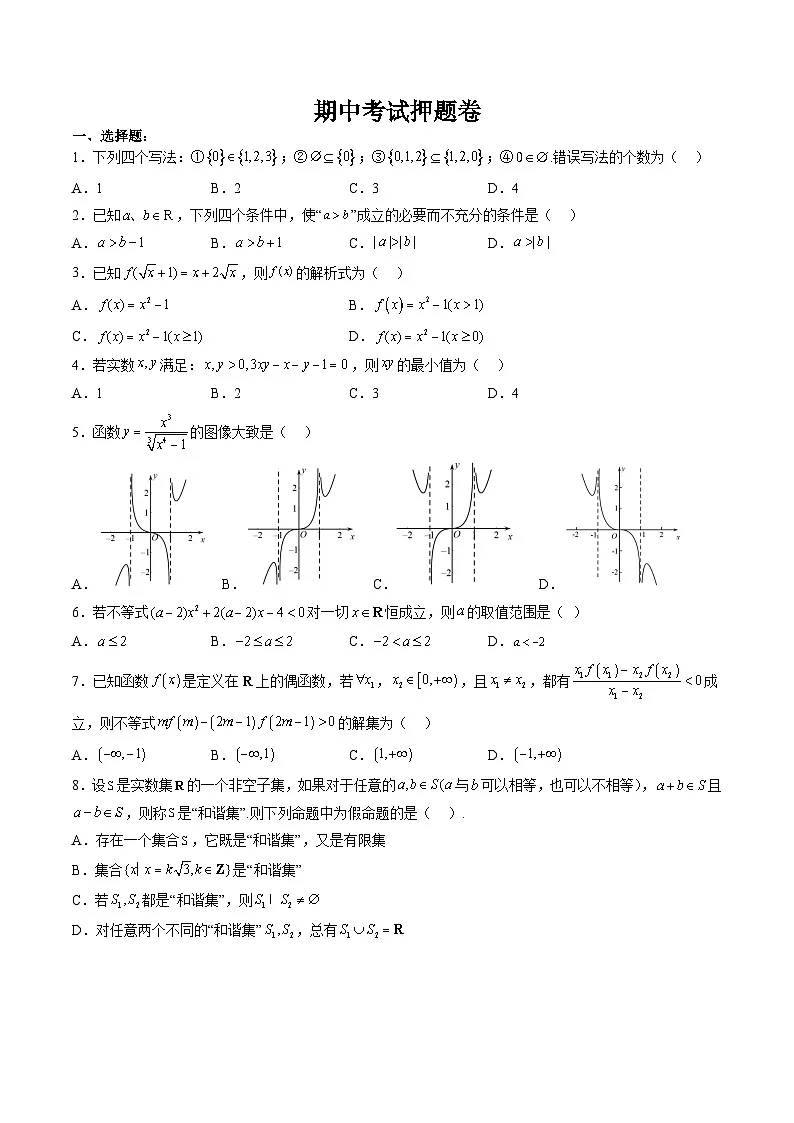 期中考试押题卷
一、选择题：
1．下列四个写法：①{0}∈{1,2,3}；②∅⊆{0}；③{0,1,2}⊆{1,2,0}；④0∈∅.错误写法的个数为（ ）
A．1 B．2 C．3 D．4
2．已知a、b∈R，下列四个条件中，使“a>b”成立的必要而不充分的条件是（ ）
A．a>b−1 B．a>b+1 C．|a|>|b| D．a>|b|
3．已知f(√x+1)=x+2√x，则f(x)的解析式为（ ）
A．f(x)=x²−1 B．f(x)=x²−1(x>1)
C．f(x)=x²−1(x≥1) D．f(x)=x²−1(x≥0)
4．若实数x,y满足：x,y>0,3xy−x−y−1=0，则xy的最小值为（ ）
A．1 B．2 C．3 D．4
5．函数y=x³/∛(x⁴−1)的图像大致是（ ）
y y y y
2 2 2 2
1 1 1 1
−2 −1 O 2 x −2 −1 O 1 2 x −2 −1 O 1 2 x -2 -1 O 1 2 x
−1 −1 −1 -1
−2 −2 −2 -2
A． B． C． D．
6．若不等式(a−2)x²+2(a−2)x−4<0对一切x∈R恒成立，则a的取值范围是（ ）
A．a≤2 B．−2≤a≤2 C．−2<a≤2 D．a<−2
7．已知函数f(x)是定义在R上的偶函数，若∀x₁，x₂∈[0,+∞)，且x₁≠x₂，都有(x₁f(x₁)−x₂f(x₂))/(x₁−x₂)<0成
立，则不等式mf(m)−(2m−1)f(2m−1)>0的解集为（ ）
A．(−∞,−1) B．(−∞,1) C．(1,+∞) D．(−1,+∞)
8．设S是实数集R的一个非空子集，如果对于任意的a,b∈S(a与b可以相等，也可以不相等)，a+b∈S且
a−b∈S，则称S是“和谐集”.则下列命题中为假命题的是（ ）.
A．存在一个集合S，它既是“和谐集”，又是有限集
B．集合{x|x=k√3,k∈Z}是“和谐集”
C．若S₁,S₂都是“和谐集”，则S₁ I S₂≠∅
D．对任意两个不同的“和谐集”S₁,S₂，总有S₁∪S₂=R